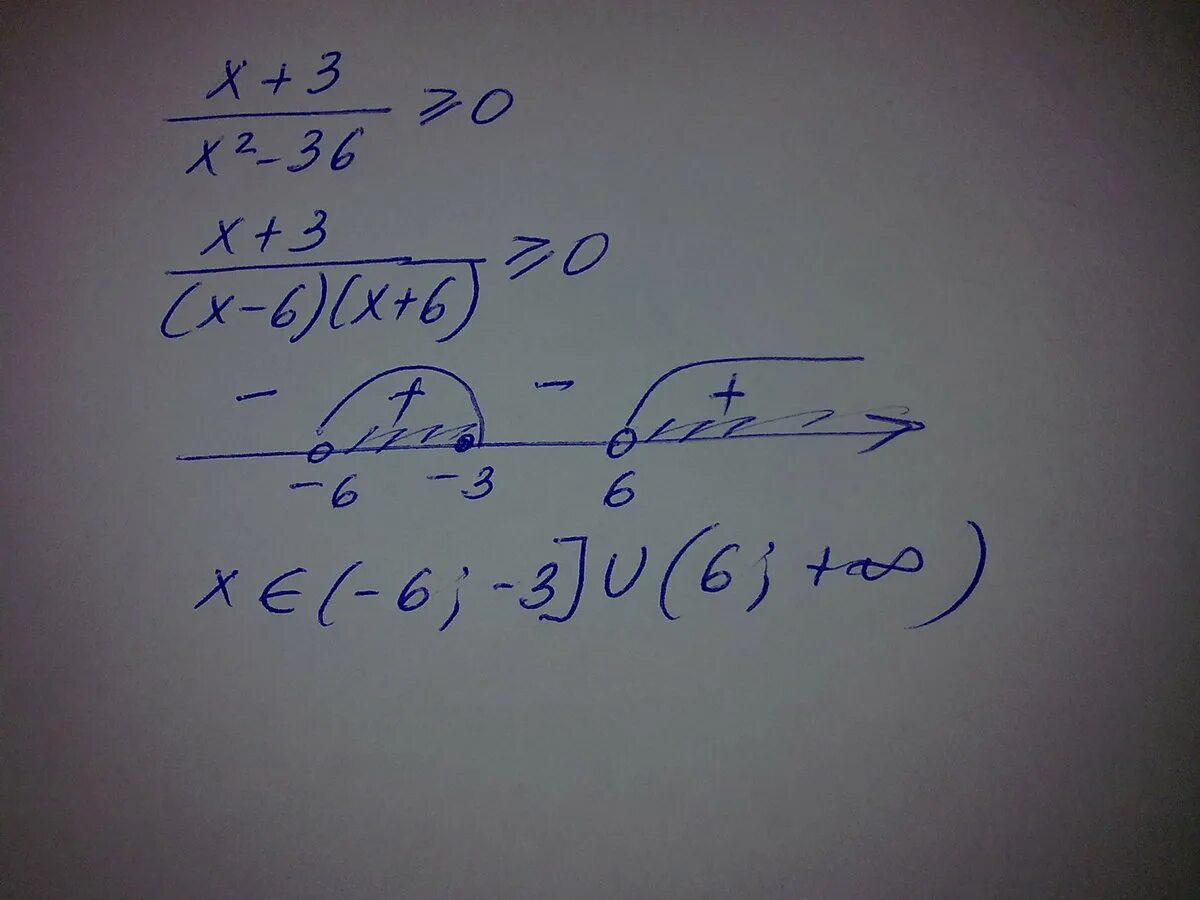 x+3
x²-36 ≥0
x+3
(x-6)(x+6) ≥0
- + - +
-6 -3 6
x∈(-6; -3]∪(6; +∞)